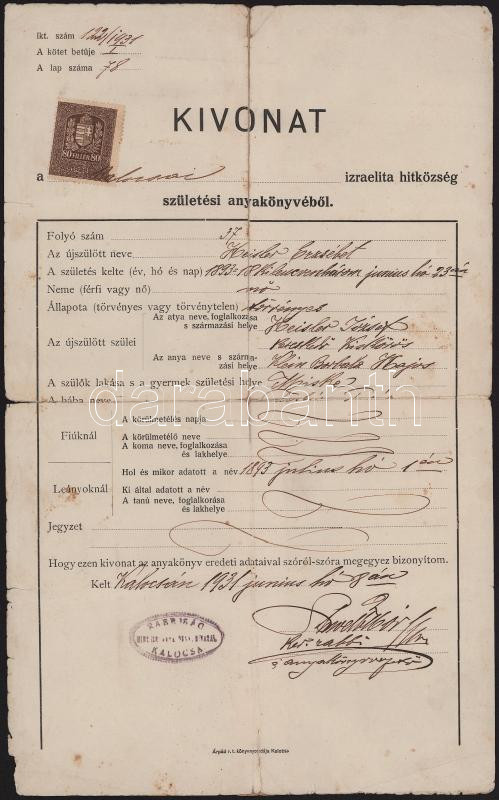 Ikt. szám 122/1931
A kötet betüje I
A lap száma 78
80 FILLÉR 80
KIVONAT
a kalocsai izraelita hitközség
születési anyakönyvéből.
Folyó szám 37
Az újszülött neve Heisler Erzsébet
A születés kelte (év, hó és nap) 1893 junius hó 23án
Neme (férfi vagy nő) nő
Állapota (törvényes vagy törvénytelen) törvényes
Az újszülött szülei
Az atya neve, foglalkozása s származási helye Heisler József
kereskedő Kiskőrös
Az anya neve s származási helye Klein Borbála Hajós
A szülők lakása s a gyermek születési helye Miske
A bába neve
Fiúknál
A körülmetélés napja
A körülmetélő neve
A koma neve, foglalkozása és lakhelye
Leányoknál
Hol és mikor adatott a név 1893 julius hó 1én
Ki által adatott a név
A tanú neve, foglalkozása és lakhelye
Jegyzet
darabanth
Hogy ezen kivonat az anyakönyv eredeti adataival szóról-szóra megegyez bizonyítom.
Kelt Kalocsán 1931 junius hó 8án
RABBISÁG
KALOCSA
ker. rabbi
s anyakönyvvezető
Árpád r. t. könyvnyomdája Kalocsa